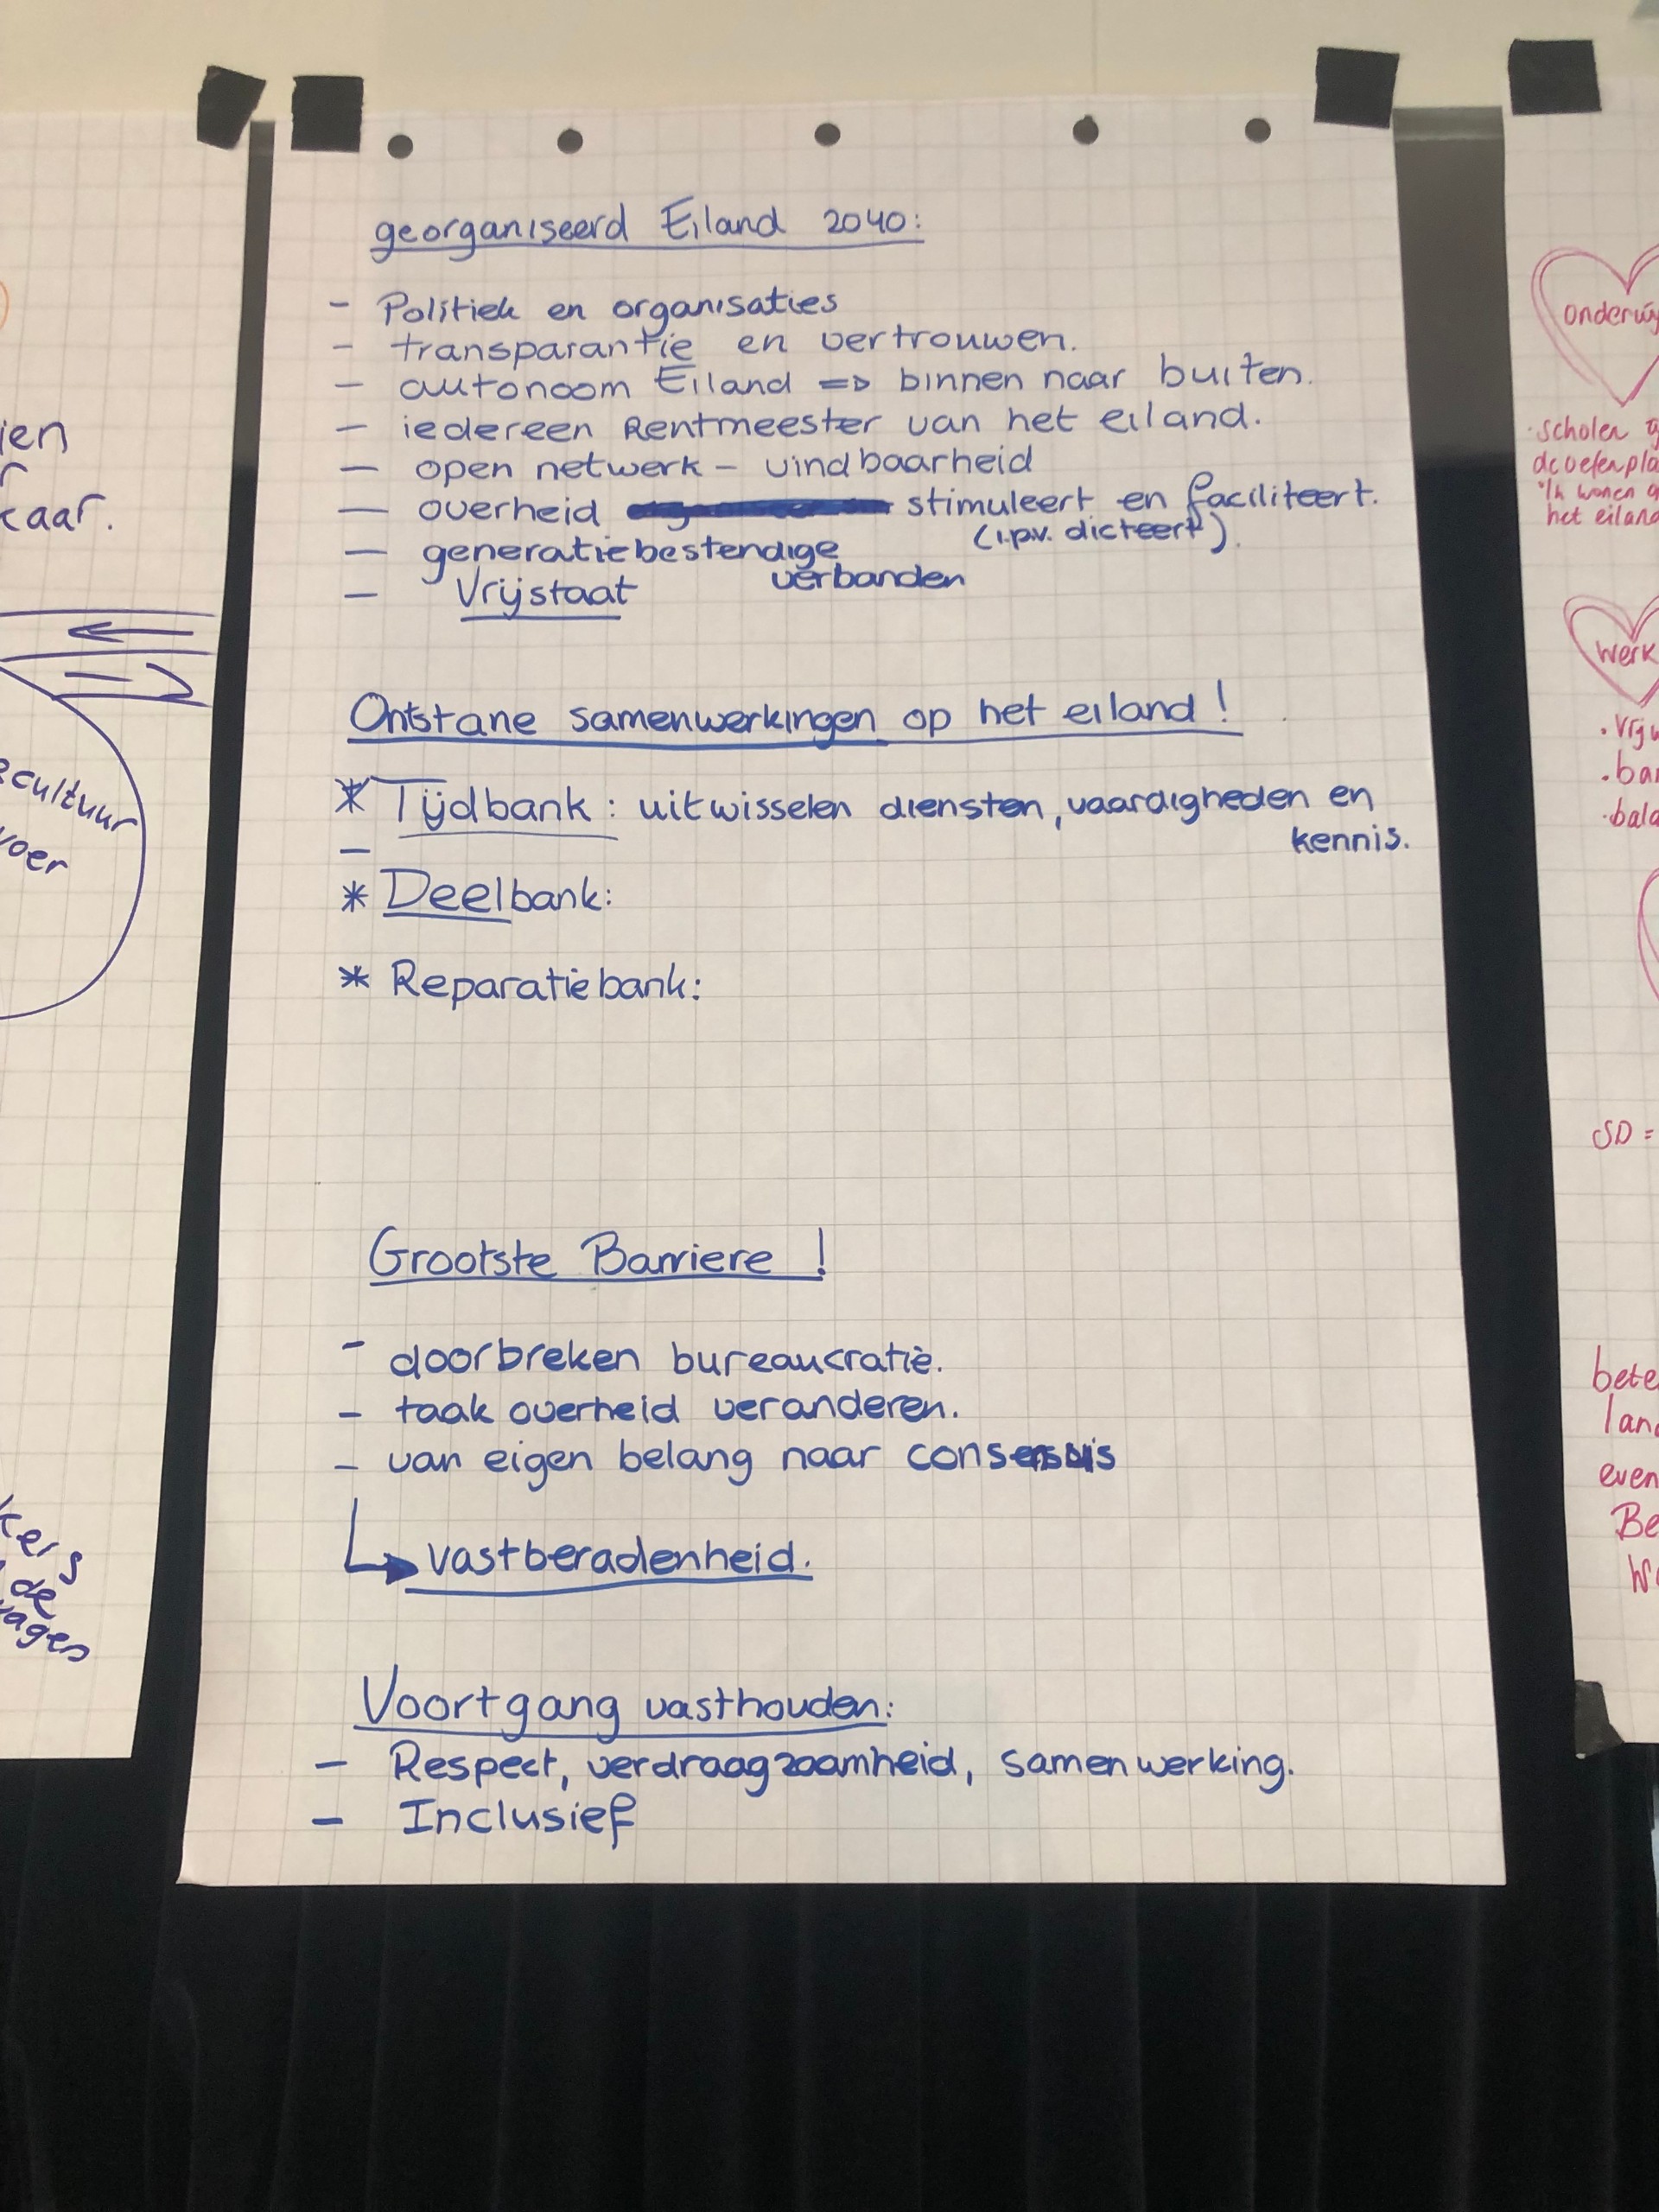 georganiseerd Eiland 2040:
- Politiek en organisaties
- transparantie en vertrouwen.
- autonoom Eiland => binnen naar buiten.
- iedereen Rentmeester van het eiland.
- open netwerk - vindbaarheid
- overheid stimuleert en faciliteert.
(i.p.v. dicteert).
- generatiebestendige
verbanden
- Vrijstaat
Ontstane samenwerkingen op het eiland!
* Tijdbank: uitwisselen diensten, vaardigheden en
kennis.
-
* Deelbank:
* Reparatiebank:
Grootste Barriere!
- doorbreken bureaucratie.
- taak overheid veranderen.
- van eigen belang naar consensus
vastberadenheid.
Voortgang vasthouden:
- Respect, verdraagzaamheid, samenwerking.
- Inclusief
ien
r
kaar.
ecultuur
voer
kers
de
vages
onderwij
scholen
"Ik wonen
het eiland
Werk
. Vrijw
. ban
. bala
SD =
bete
land
even
Be